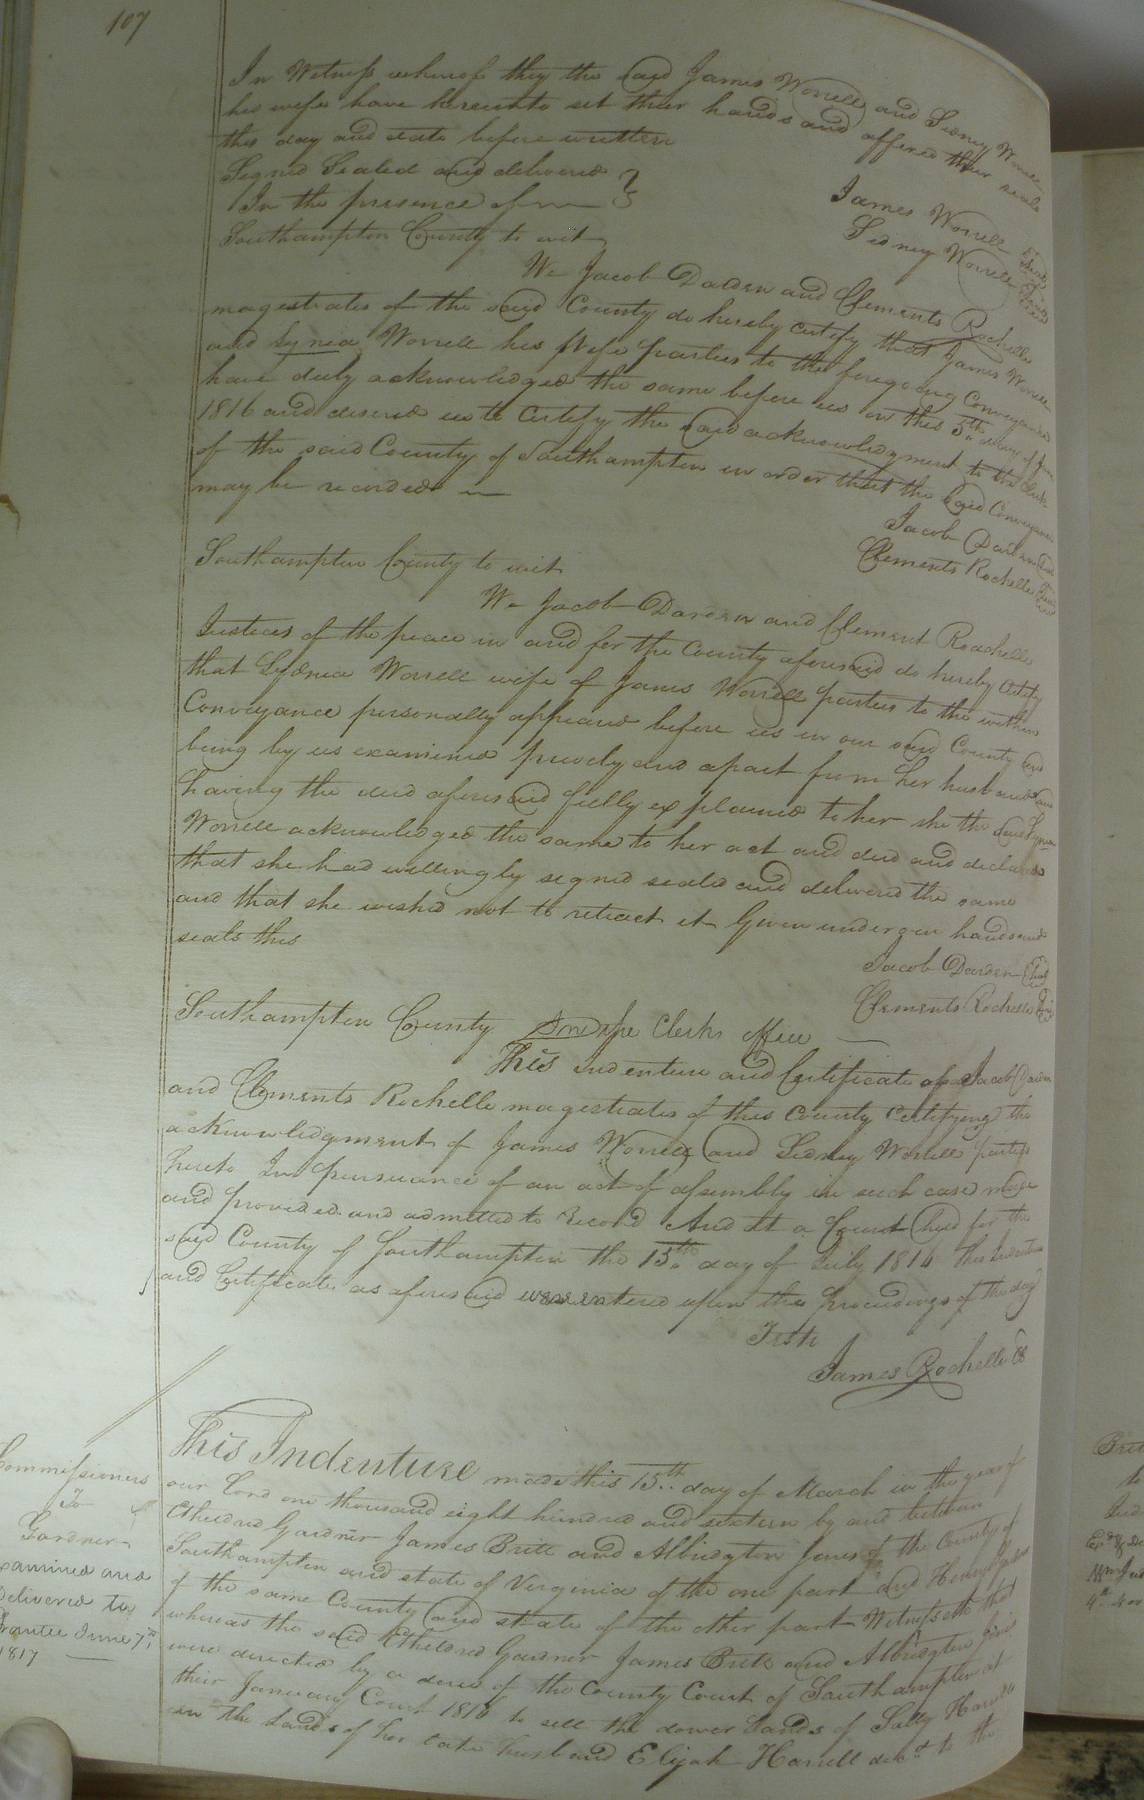 107
In Witness whereof they the said James Worrell and Sidney Worrell
his wife have hereunto set their hands and affixed their seals
this day and date before written
Signed Sealed and delivered }
In the presence of
James Worrell {Seal}
Sidney Worrell {Seal}
Southampton County to wit
We Jacob Darden and Clements Rochelle
magestrates of the said County do hereby certify that James Worrell
and Synea Worrell his Wife parties to the foregoing Conveyance
have duly acknowledged the same before us on this 5th day of June
1816 and desired us to Certify the said acknowledgment to the Clerk
of the said County of Southampton in order that the said Conveyance
may be recorded
Jacob Darden {Seal}
Clements Rochelle {Seal}
Southampton County to wit
We Jacob Darden and Clement Roachelle
Justices of the peace in and for the County aforesaid do hereby Certify
that Sydnea Worrell wife of James Worrell parties to the within
Conveyance personally appeared before us in our said County and
being by us examined privily and apart from her husband and
having the deed aforesaid fully explained to her she the said Synea
Worrell acknowledged the same to her act and deed and declared
that she had willingly signed sealed and delivered the same
and that she wished not to retract it Given under our hands and
seals this
Jacob Darden {Seal}
Clements Rochelle {Seal}
Southampton County In the Clerks office
This indenture and Certificate of Jacob Darden
and Clements Rochelle magestrates of this County Certifying the
acknowledgment of James Worrell and Sidney Worrell parties
hereto In pursuance of an act of assembly in such case made
and provided and admitted to Record And At a Court held for the
said County of Southampton the 15th day of July 1816 this Indenture
and Certificate as aforesaid were entered upon the proceedings of the day
Teste
James Rochelle CC
Commissioners
To
Gardner
Examined and
Delivered to
Grantee June 7th
1817
This Indenture made this 15th day of March in the year of
our Lord one thousand eight hundred and sixteen by and between
Etheldred Gardner James Britt and Albridgton Jones of the County of
Southampton and state of Virginia of the one part and Henry Gardner
of the same County and state of the other part Witnesseth that
whereas the said Etheldred Gardner James Britt and Albridgton Jones
were directed by a decree of the County Court of Southampton at
their January Court 1816 to sell the dower Lands of Sally Harrell
in the Lands of her late husband Elijah Harrell decd to the